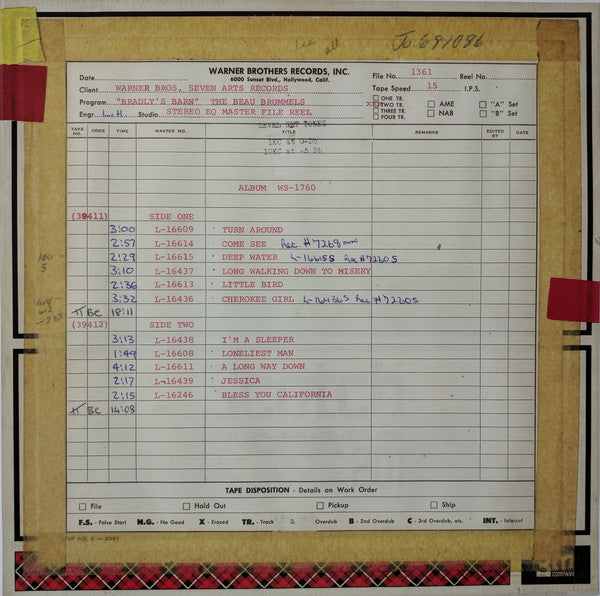 Jo. 691086
WARNER BROTHERS RECORDS, INC.
6000 Sunset Blvd., Hollywood, Calif.
Date
File No. 1361 Reel No.
Client WARNER BROS, SEVEN ARTS RECORDS
Tape Speed 15 I.P.S.
Program "BRADLY'S BARN" THE BEAU BRUMMELS
ONE TR.
XX TWO TR. AME "A" Set
THREE TR. NAB "B" Set
FOUR TR.
Engr. L.H. Studio STEREO EQ MASTER FILE REEL
LEVEL SET TONES
TAKE NO. CODE TIME MASTER NO. TITLE REMARKS EDITED BY DATE
1KC at 0-Db
10KC at -5 Db
ALBUM WS-1760
(39411) SIDE ONE
3:00 L-16609 TURN AROUND
2:57 L-16614 COME SEE Rec. #7268
2:29 L-16615 DEEP WATER L-16615S Rec #7260S
3:10 L-16437 LONG WALKING DOWN TO MISERY
2:36 L-16613 LITTLE BIRD
3:32 L-16436 CHEROKEE GIRL L-16436S Rec #7260S
BC 18:11
(39412) SIDE TWO
3:13 L-16438 I'M A SLEEPER
1:49 L-16608 LONELIEST MAN
4:12 L-16611 A LONG WAY DOWN
2:17 L-16439 JESSICA
2:15 L-16246 BLESS YOU CALIFORNIA
BC 14:08
TAPE DISPOSITION - Details on Work Order
File Hold Out Pickup Ship
F.S. - False Start N.G. - No Good X - Erased TR. - Track Overdub B - 2nd Overdub C - 3rd Overdub, etc. INT. - Intercut
COMPANY